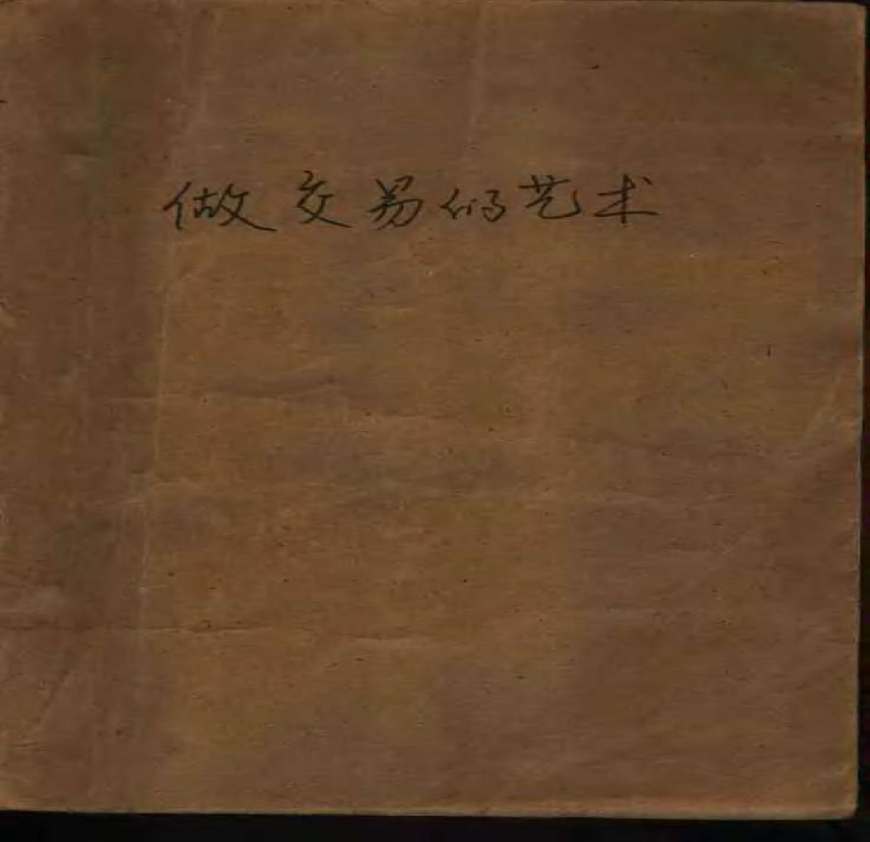 做交易的艺术